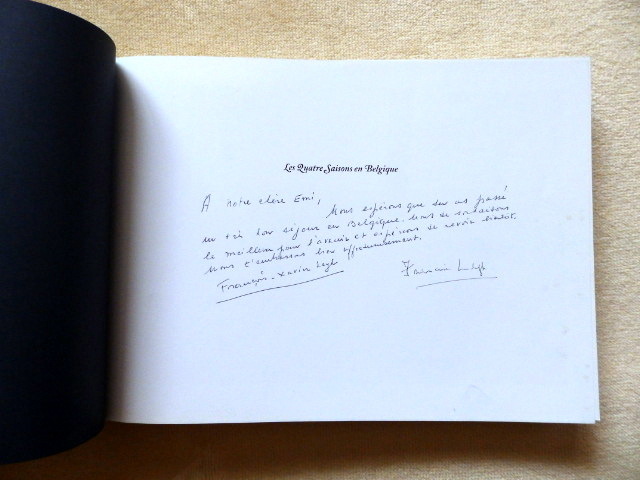 Les Quatre Saisons en Belgique
A notre chère Emi,
Nous espérons que tu as passé
un très bon séjour en Belgique. Nous te souhaitons
le meilleur pour l'avenir et espérons se revoir bientôt.
Nous t'embrassons bien affectueusement.
François-Xavier